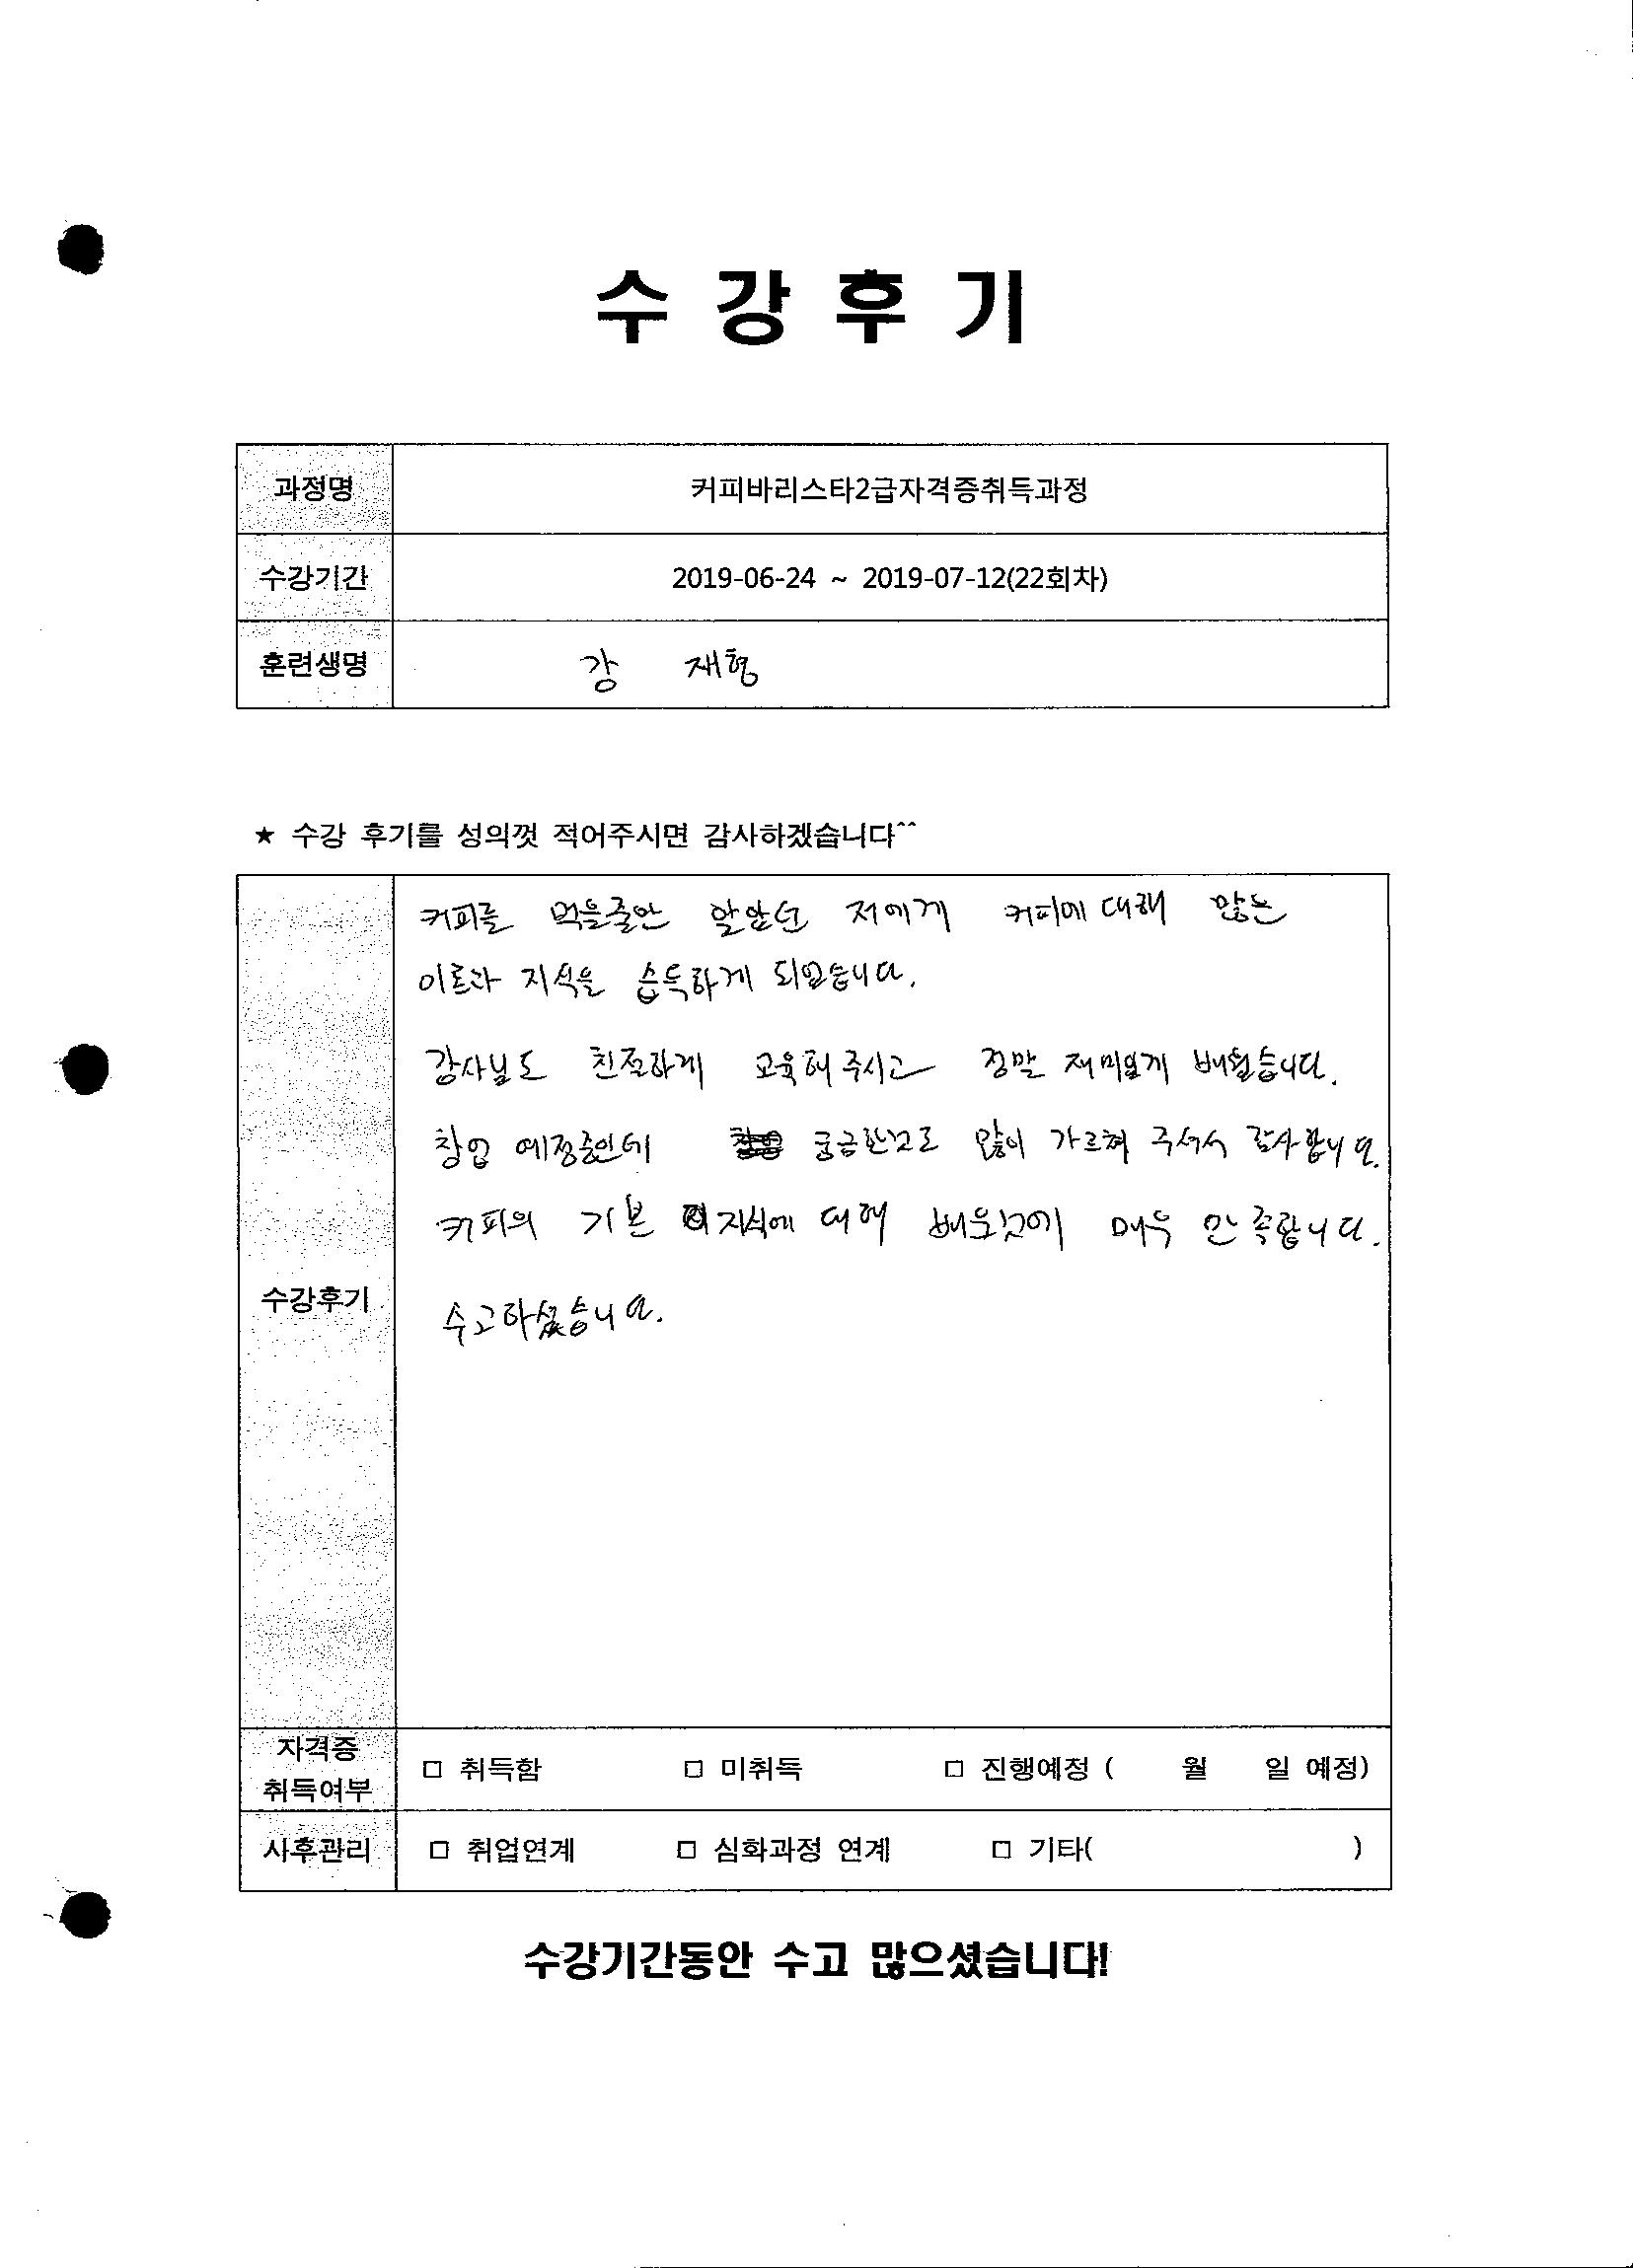 수 강 후 기
과정명 커피바리스타2급자격증취득과정
수강기간 2019-06-24 ~ 2019-07-12(22회차)
훈련생명 강 재형
★ 수강 후기를 성의껏 적어주시면 감사하겠습니다^^
커피를 먹을줄만 알았던 저에게 커피에 대해 많은
이론과 지식을 습득하게 되었습니다.
강사님도 친절하게 교육해 주시고 정말 재미있게 배웠습니다.
창업 예정중인데 궁금한것도 많이 가르쳐 주셔서 감사합니다.
커피의 기본 지식에 대해 배운것에 매우 만족합니다.
수강후기
수고하셨습니다.
자격증
취득여부
□ 취득함 □ 미취득 □ 진행예정 ( 월 일 예정)
사후관리 □ 취업연계 □ 심화과정 연계 □ 기타( )
수강기간동안 수고 많으셨습니다!